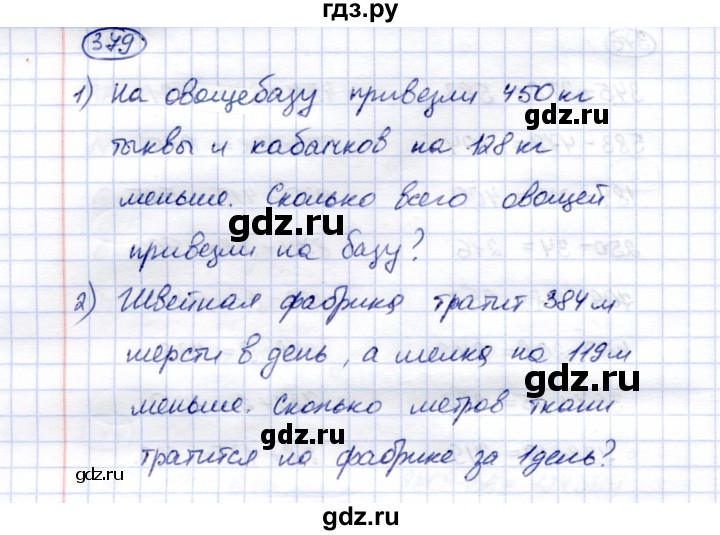 гдз.ру
379.
1) На овощебазу привезли 450 кг
тыквы и кабачков на 128 кг
меньше. Сколько всего овощей
gdz.ru
привезли на базу?
2) Швейная фабрика тратит 384 м
шерсти в день, а шелка на 119 м
меньше. Сколько метров ткани
gdz.ru
тратится на фабрике за 1 день?
gdz.ru
gdz.ru
gdz.ru